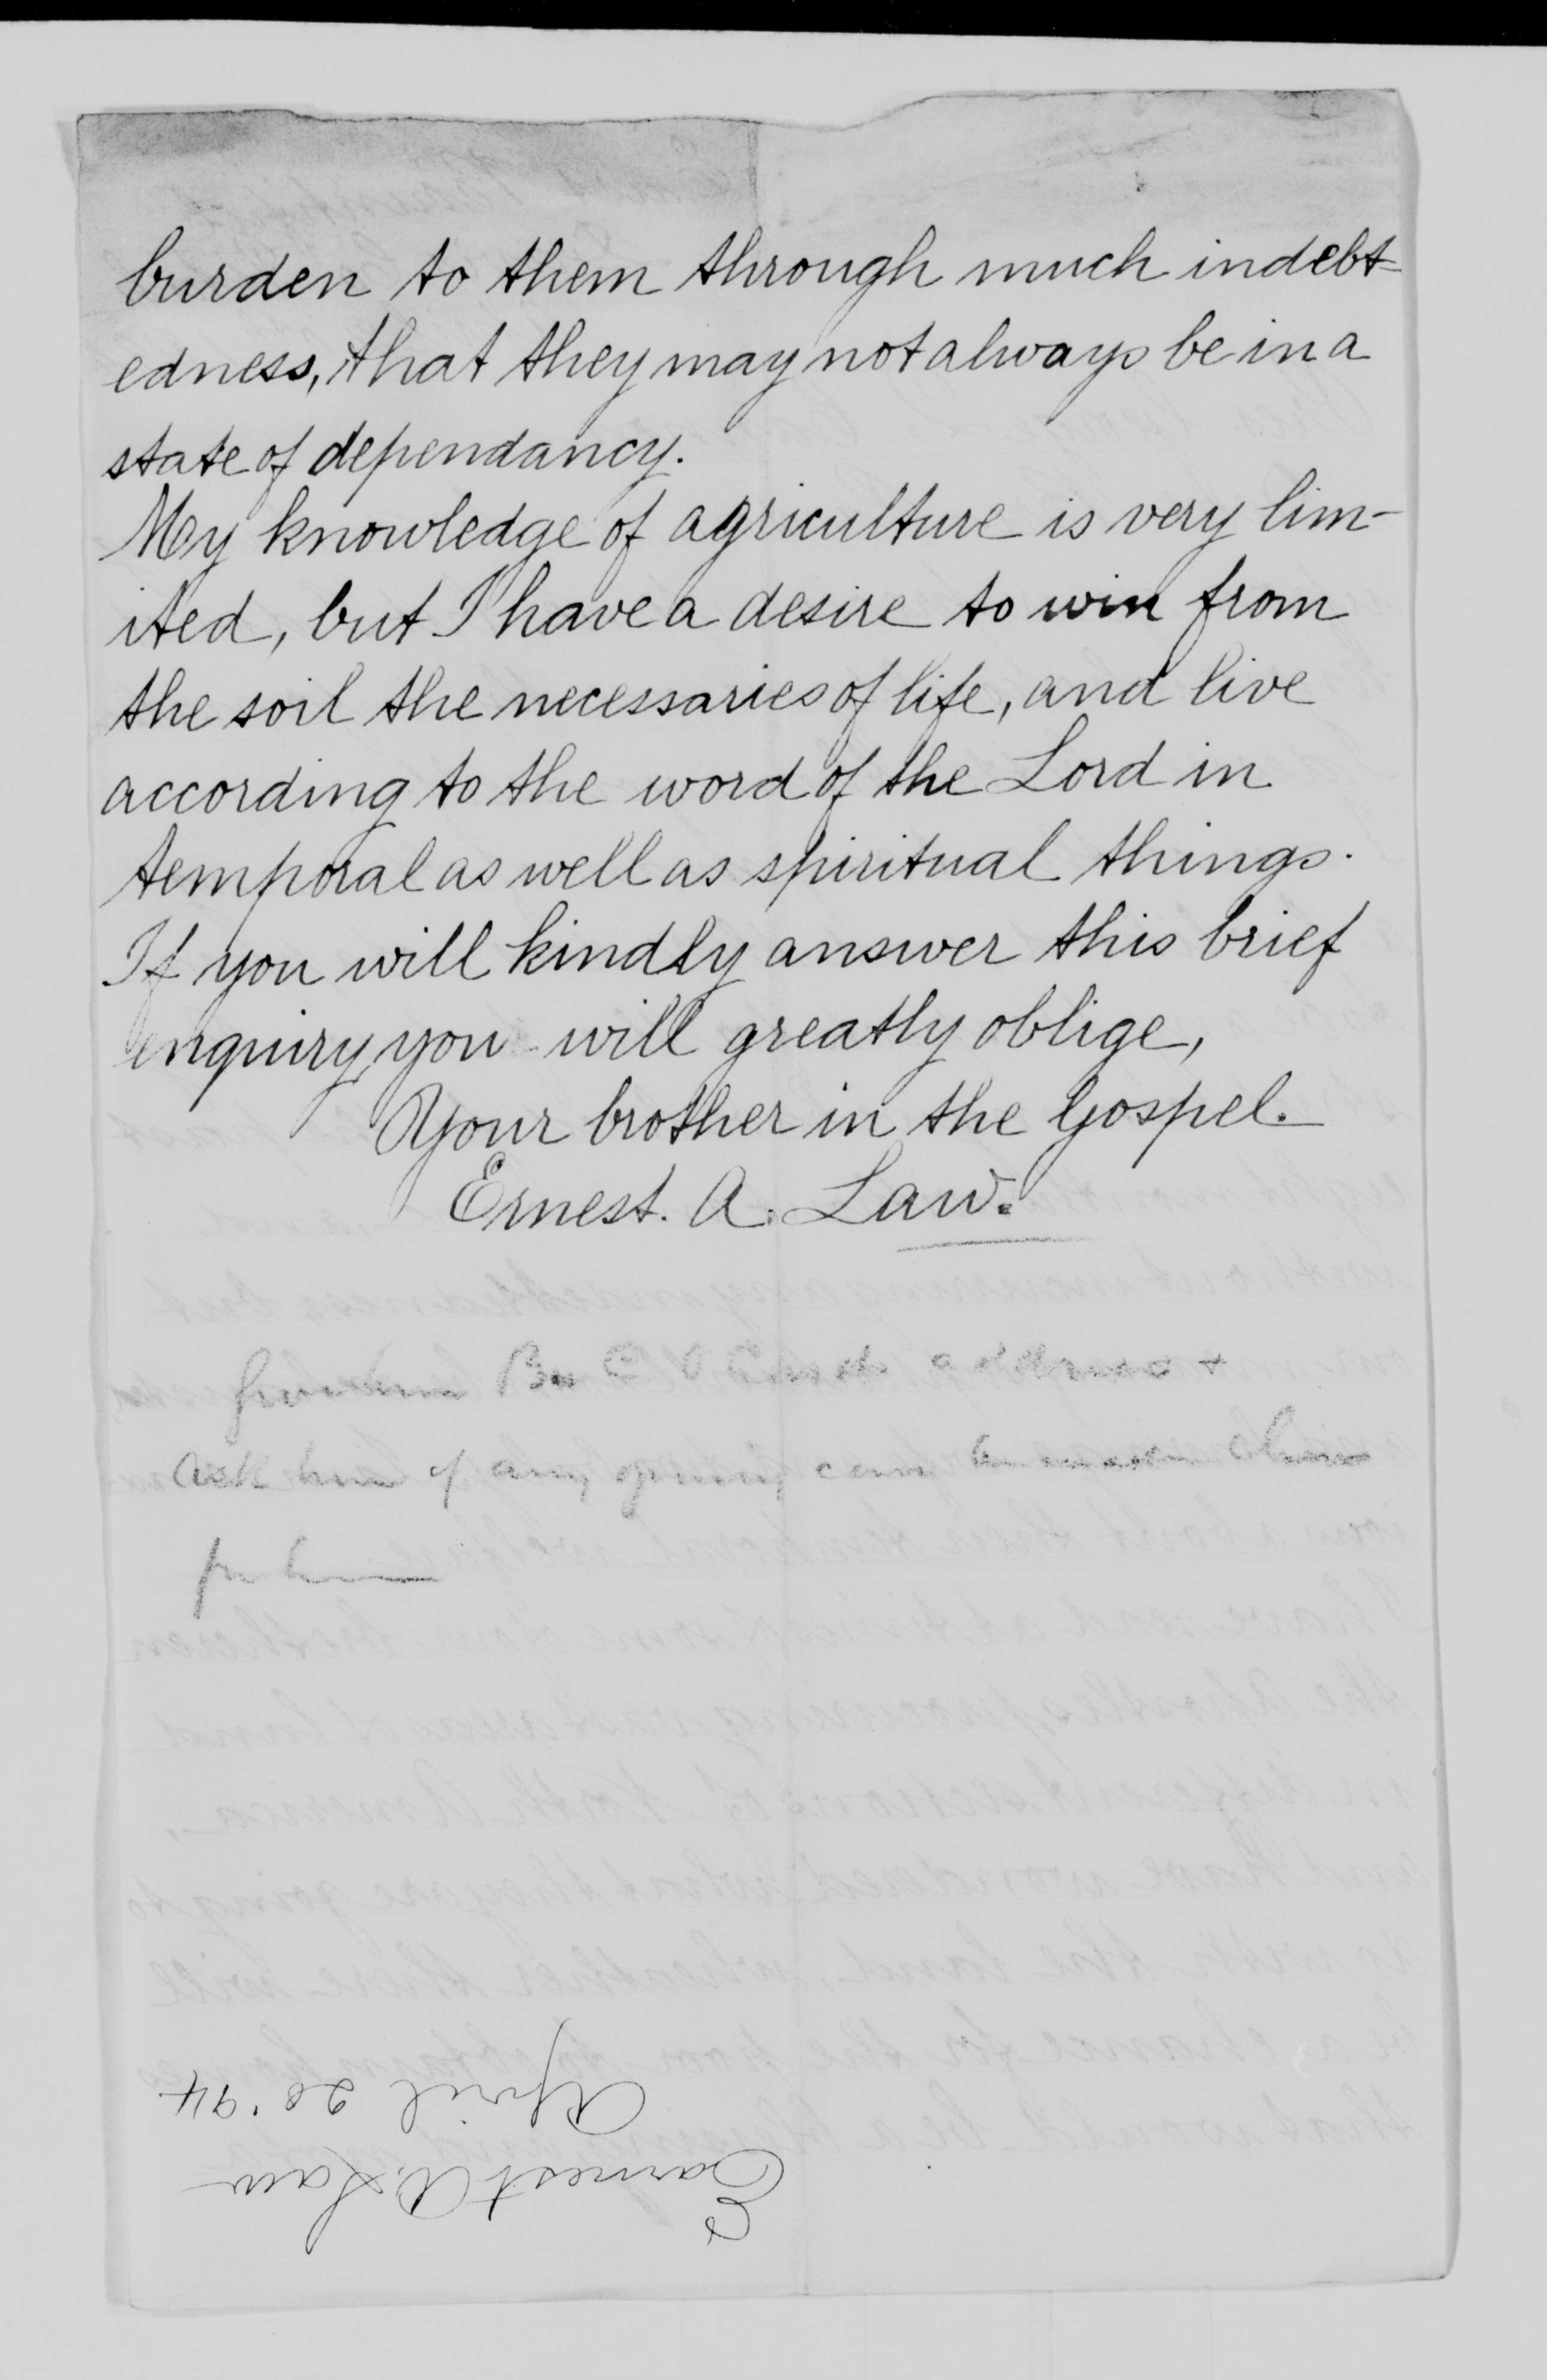 burden to them through much indebt-
edness, that they may not always be in a
state of dependancy.
My knowledge of agriculture is very lim-
ited, but I have a desire to win from
the soil the necessaries of life, and live
according to the word of the Lord in
temporal as well as spiritual things.
If you will kindly answer this brief
enquiry, you will greatly oblige,
Your brother in the Gospel.
Ernest. A. Law.
address +
ask him if any opening can
for him
Earnest A. Law
April 20 '94